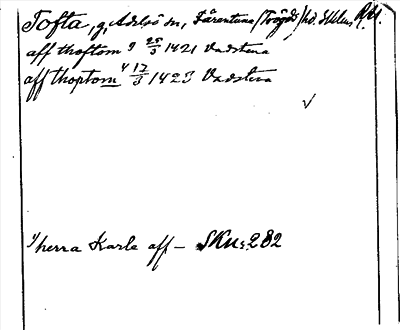 Tofta, g, Adelsö sn, Färentuna (Trögd) hd. Uhl. RA.
aff thoftom 9 25/3 1421 Vadstena
aff thoptom 4 17/3 1423 Vadstena
√
1/ herra Karle aff – SKu 282